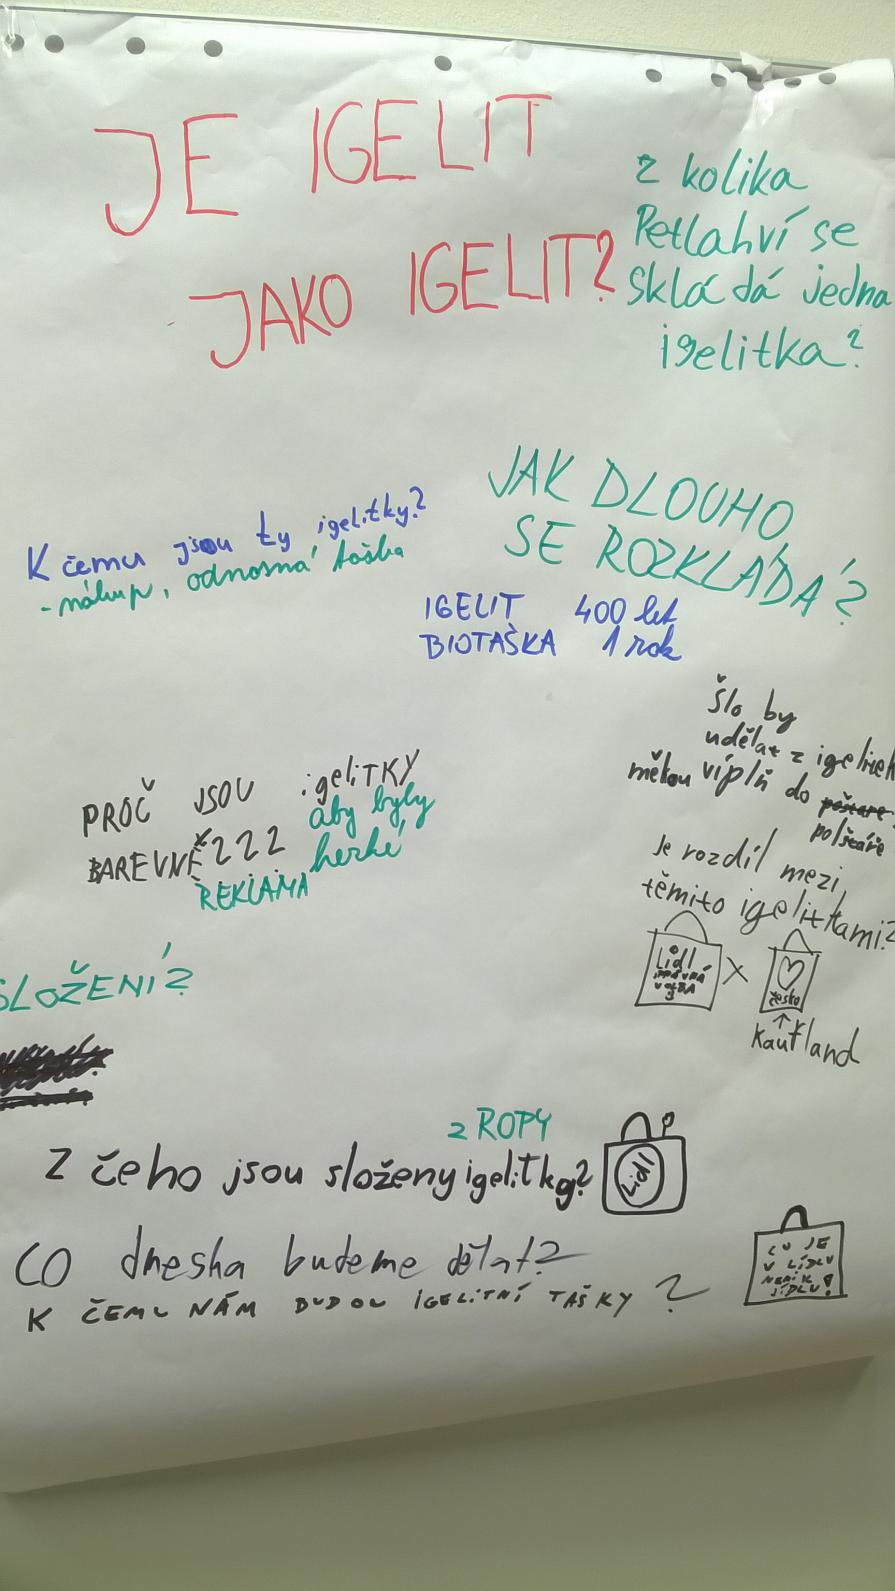 JE IGELIT
JAKO IGELIT?
z kolika
Petlahví se
skládá jedna
igelitka?
K čemu jsou ty igelitky?
- nákup, odnosná taška
JAK DLOUHO
SE ROZKLÁDÁ?
IGELIT 400 let
BIOTAŠKA 1 rok
Šlo by
udělat z igelitek
měkou víplň do
polštáře
PROČ JSOU igeliTKY
BAREVNÉ???
aby byly
hezké
REKLAMA
Je rozdíl mezi
těmito igelitkami?
Lidl
SPRÁVNÁ
VOLBA
X
česko
Kaufland
SLOŽENÍ?
z ROPY
Z čeho jsou složeny igelitky?
Lidl
CO dneska budeme dělat?
K ČEMU NÁM BUDOU IGELITNÍ TAŠKY?
CO JE
V LÍDLU
NENÍ K
JÍDLU!